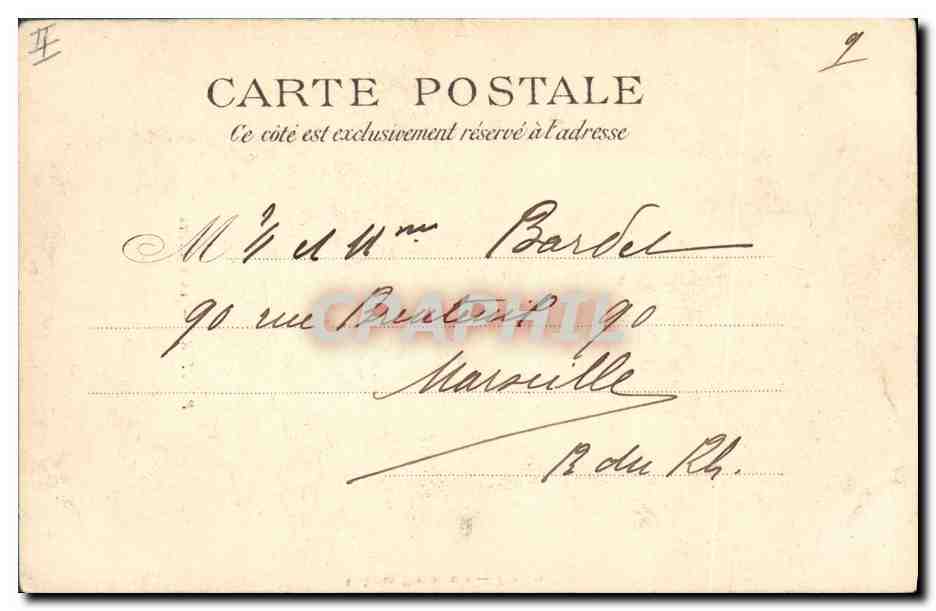 CARTE POSTALE
Ce côté est exclusivement réservé à l'adresse
M et Mme Bardel
90 rue Breteuil 90
CPAPHIL
Marseille
B du Rh.